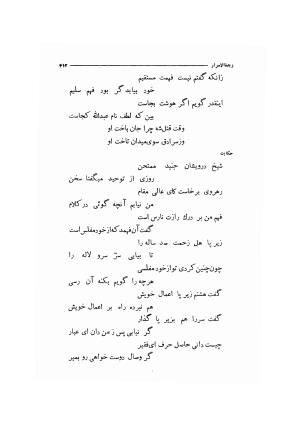 زبدةالاسرار
۴۱۳
زانکه گفتم نیست فهمت مستقیم
خود بیابد گر بود فهم سلیم
اینقدر گویم اگر هوشت بجاست
بین که لطف نام عبدالله کجاست
وقت قتل شه چرا جان باخت او
وز سرادق سوی میدان تاخت او
حکایت
شیخ درویشان جنید ممتحن
روزی از توحید میگفتا سخن
رهروی برخاست کای عالی مقام
من نیابم آنچه گوئی در کلام
فهم من بر درك رازت نارس است
گفت آن فهمد که از خود مفلس است
زیر پا هل زحمت صد ساله را
تا بیابی سرّ سرو لاله را
چون چنین کردی تو از خود مفلسی
هرچه را گویم بکنه آن رسی
گفت هشتم زیر پا اعمال خویش
هم نبرده راه بر اعمال خویش
گفت سر را هم بزیر پا گذار
گر نیابی پس ز من دان ای عیار
چیست دانی حاصل حرف ای فقیر
گر وصال دوست خواهی رو بمیر